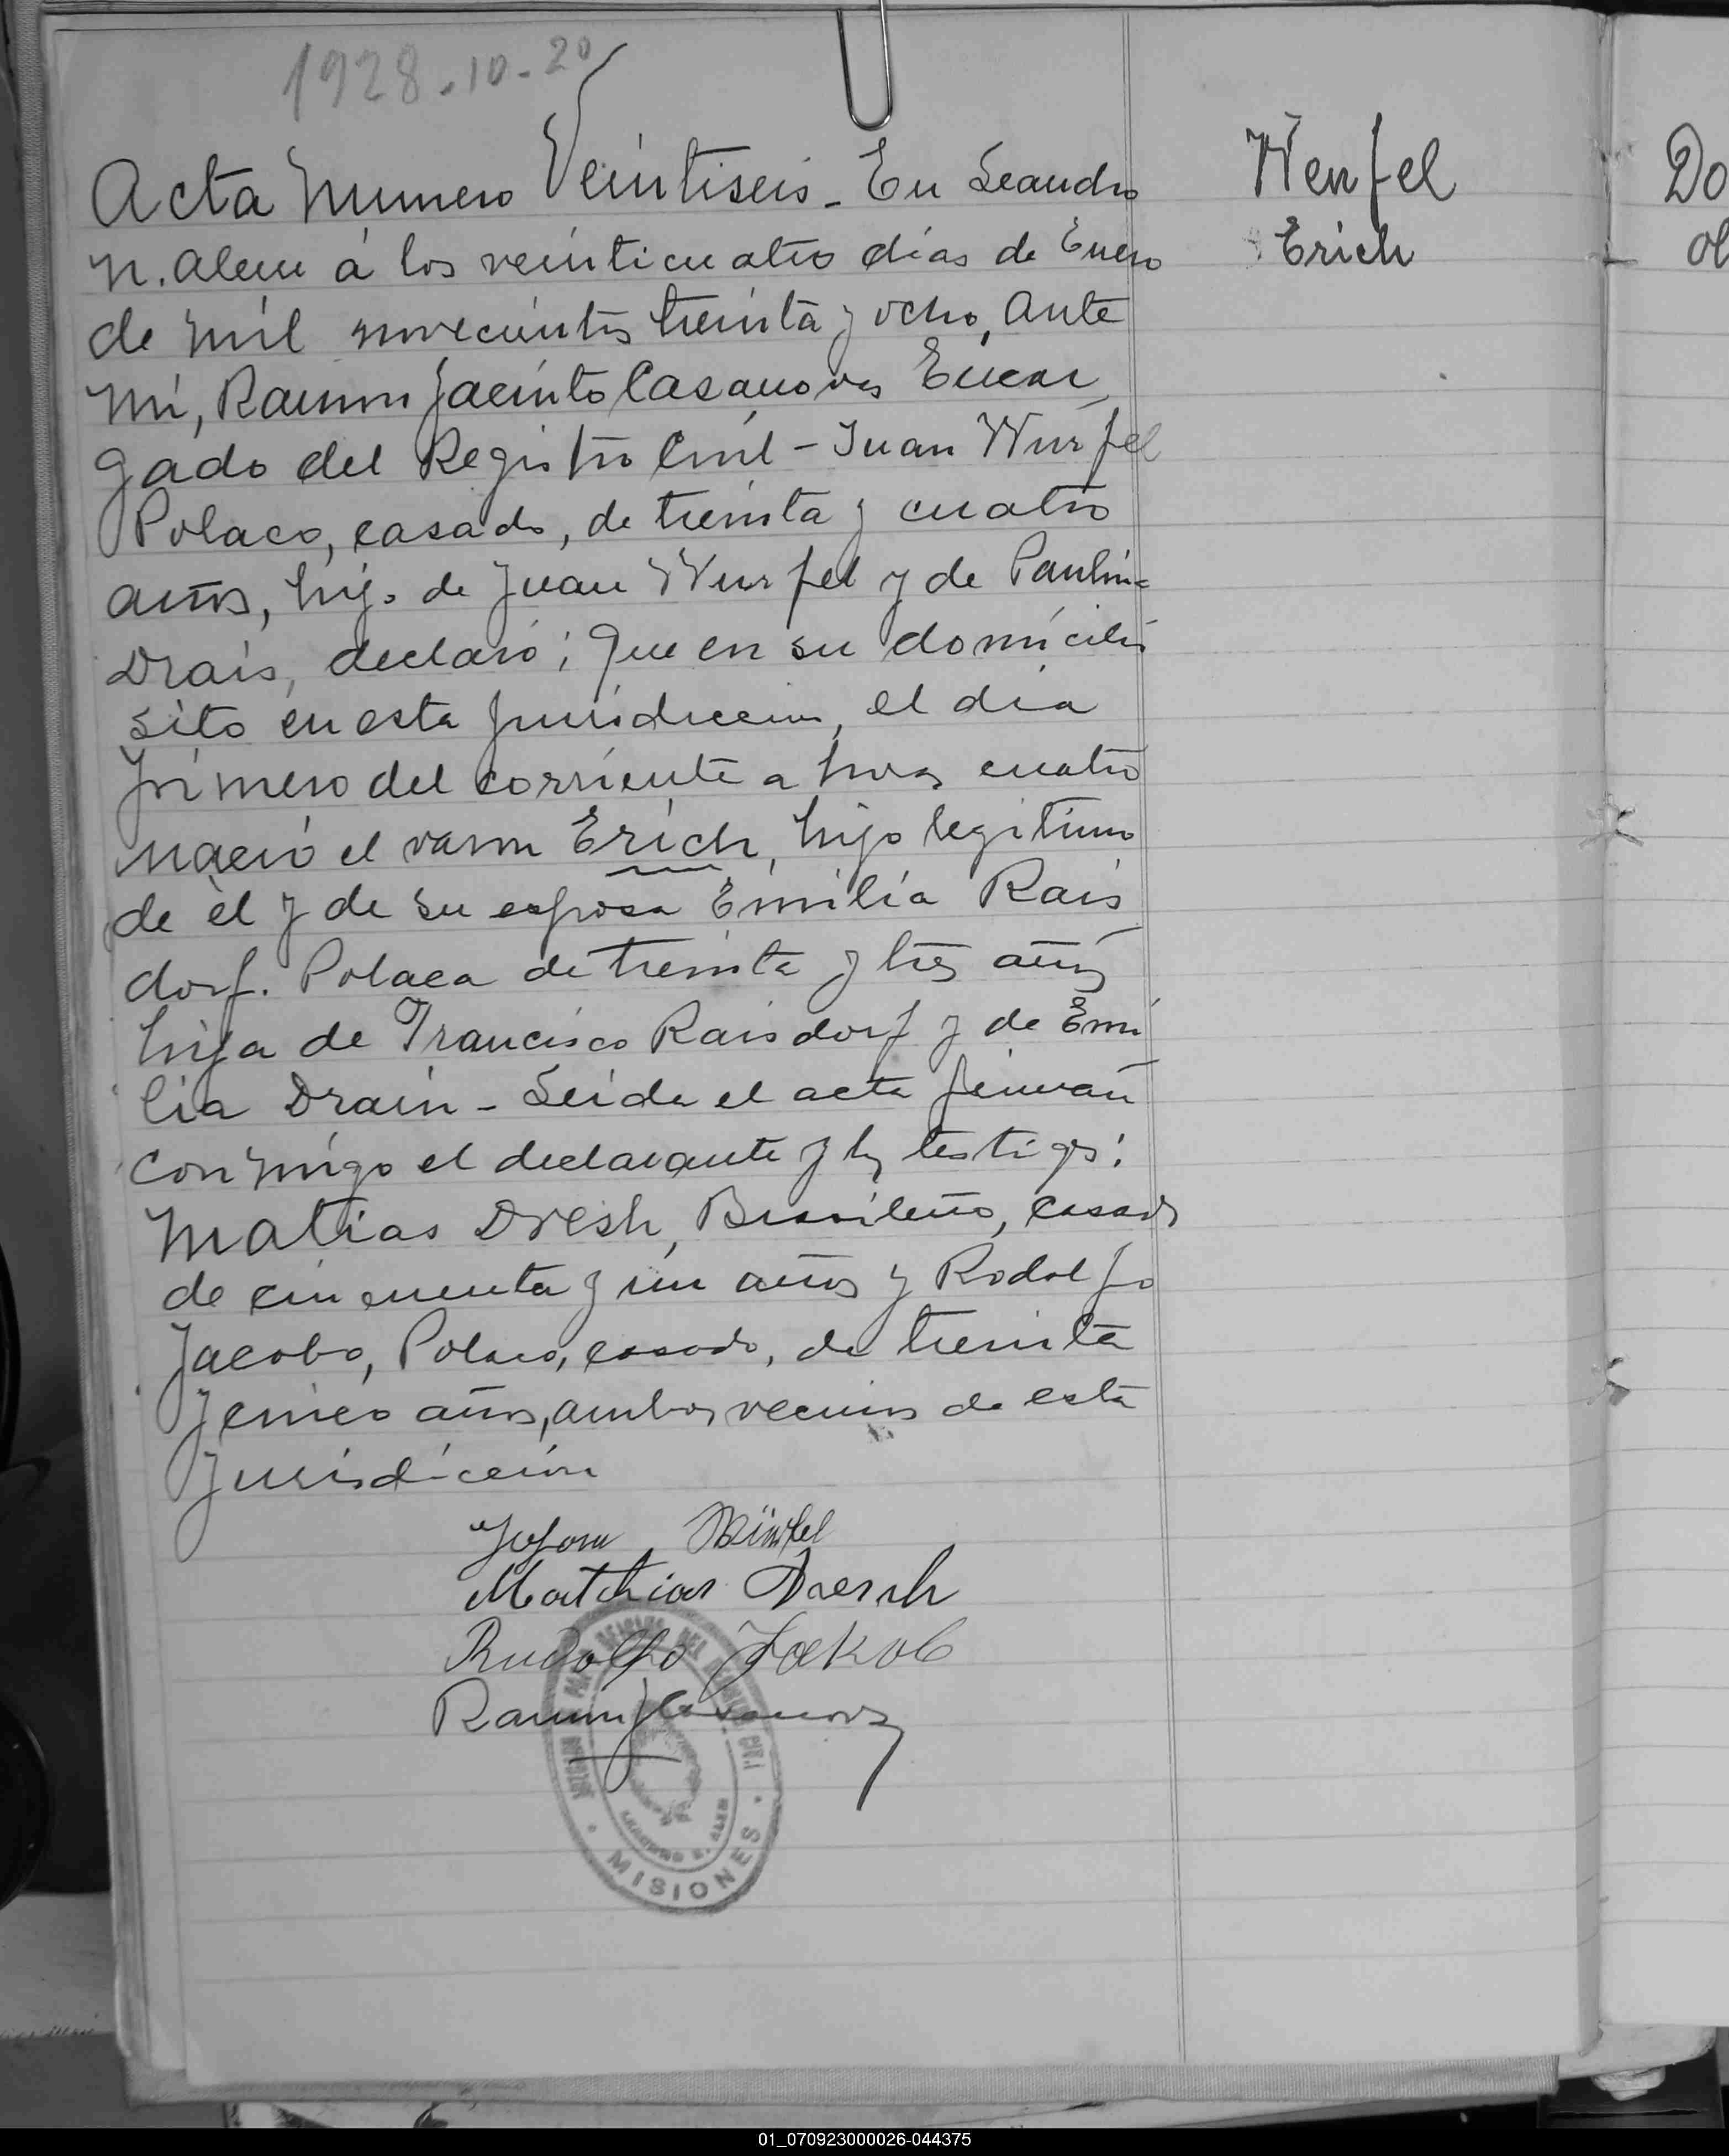 1928.10-20
Acta Numero Veintiseis - En Leandro
N. Alem á los veinticuatro dias de Enero
de mil novecientos treinta y ocho, Ante
mi, Ramon Jacinto Casanovas Encar
gado del Registro Civil - Juan Wurfel
Polaco, casado, de treinta y cuatro
años, hijo de Juan Wurfel y de Paulina
Drais, declaró; Que en su domicilio
sito en esta jurisdiccion, el dia
primero del corriente a horas cuatro
nació el varon Erich, hijo legitimo
de él y de su esposa Emilia Rais
dorf. Polaca de treinta y tres años
hija de Francisco Raisdorf y de Emi
lia Drain - Leida el acta firman
conmigo el declarante y los testigos:
Matias Dresh, Brasileño, casado
de cincuenta y un años y Rodolfo
Jacobo, Polaco, casado, de treinta
y cinco años, ambos vecinos de esta
Jurisdiccion
Würfel
Mathias Dresch
Rudolfo Jakob
Ramon J Casanovas
DEL REGISTRO CIVIL
LEANDRO N. ALEM
MISIONES
Wenfel
Erich
Do
01_070923000026-044375